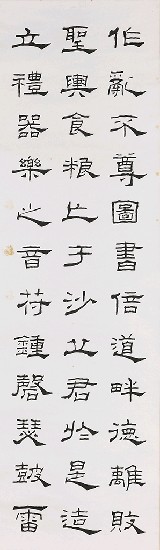 作亂不尊圖書倍道畔德離敗
聖輿食粮亡于沙丘君於是造
立禮器樂之音苻鍾磬瑟鼓雷